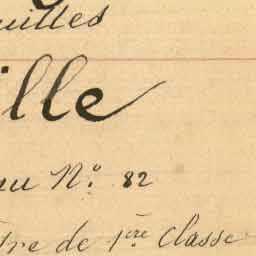 uilles
ille
nu Nº 82
tre de 1ère classe